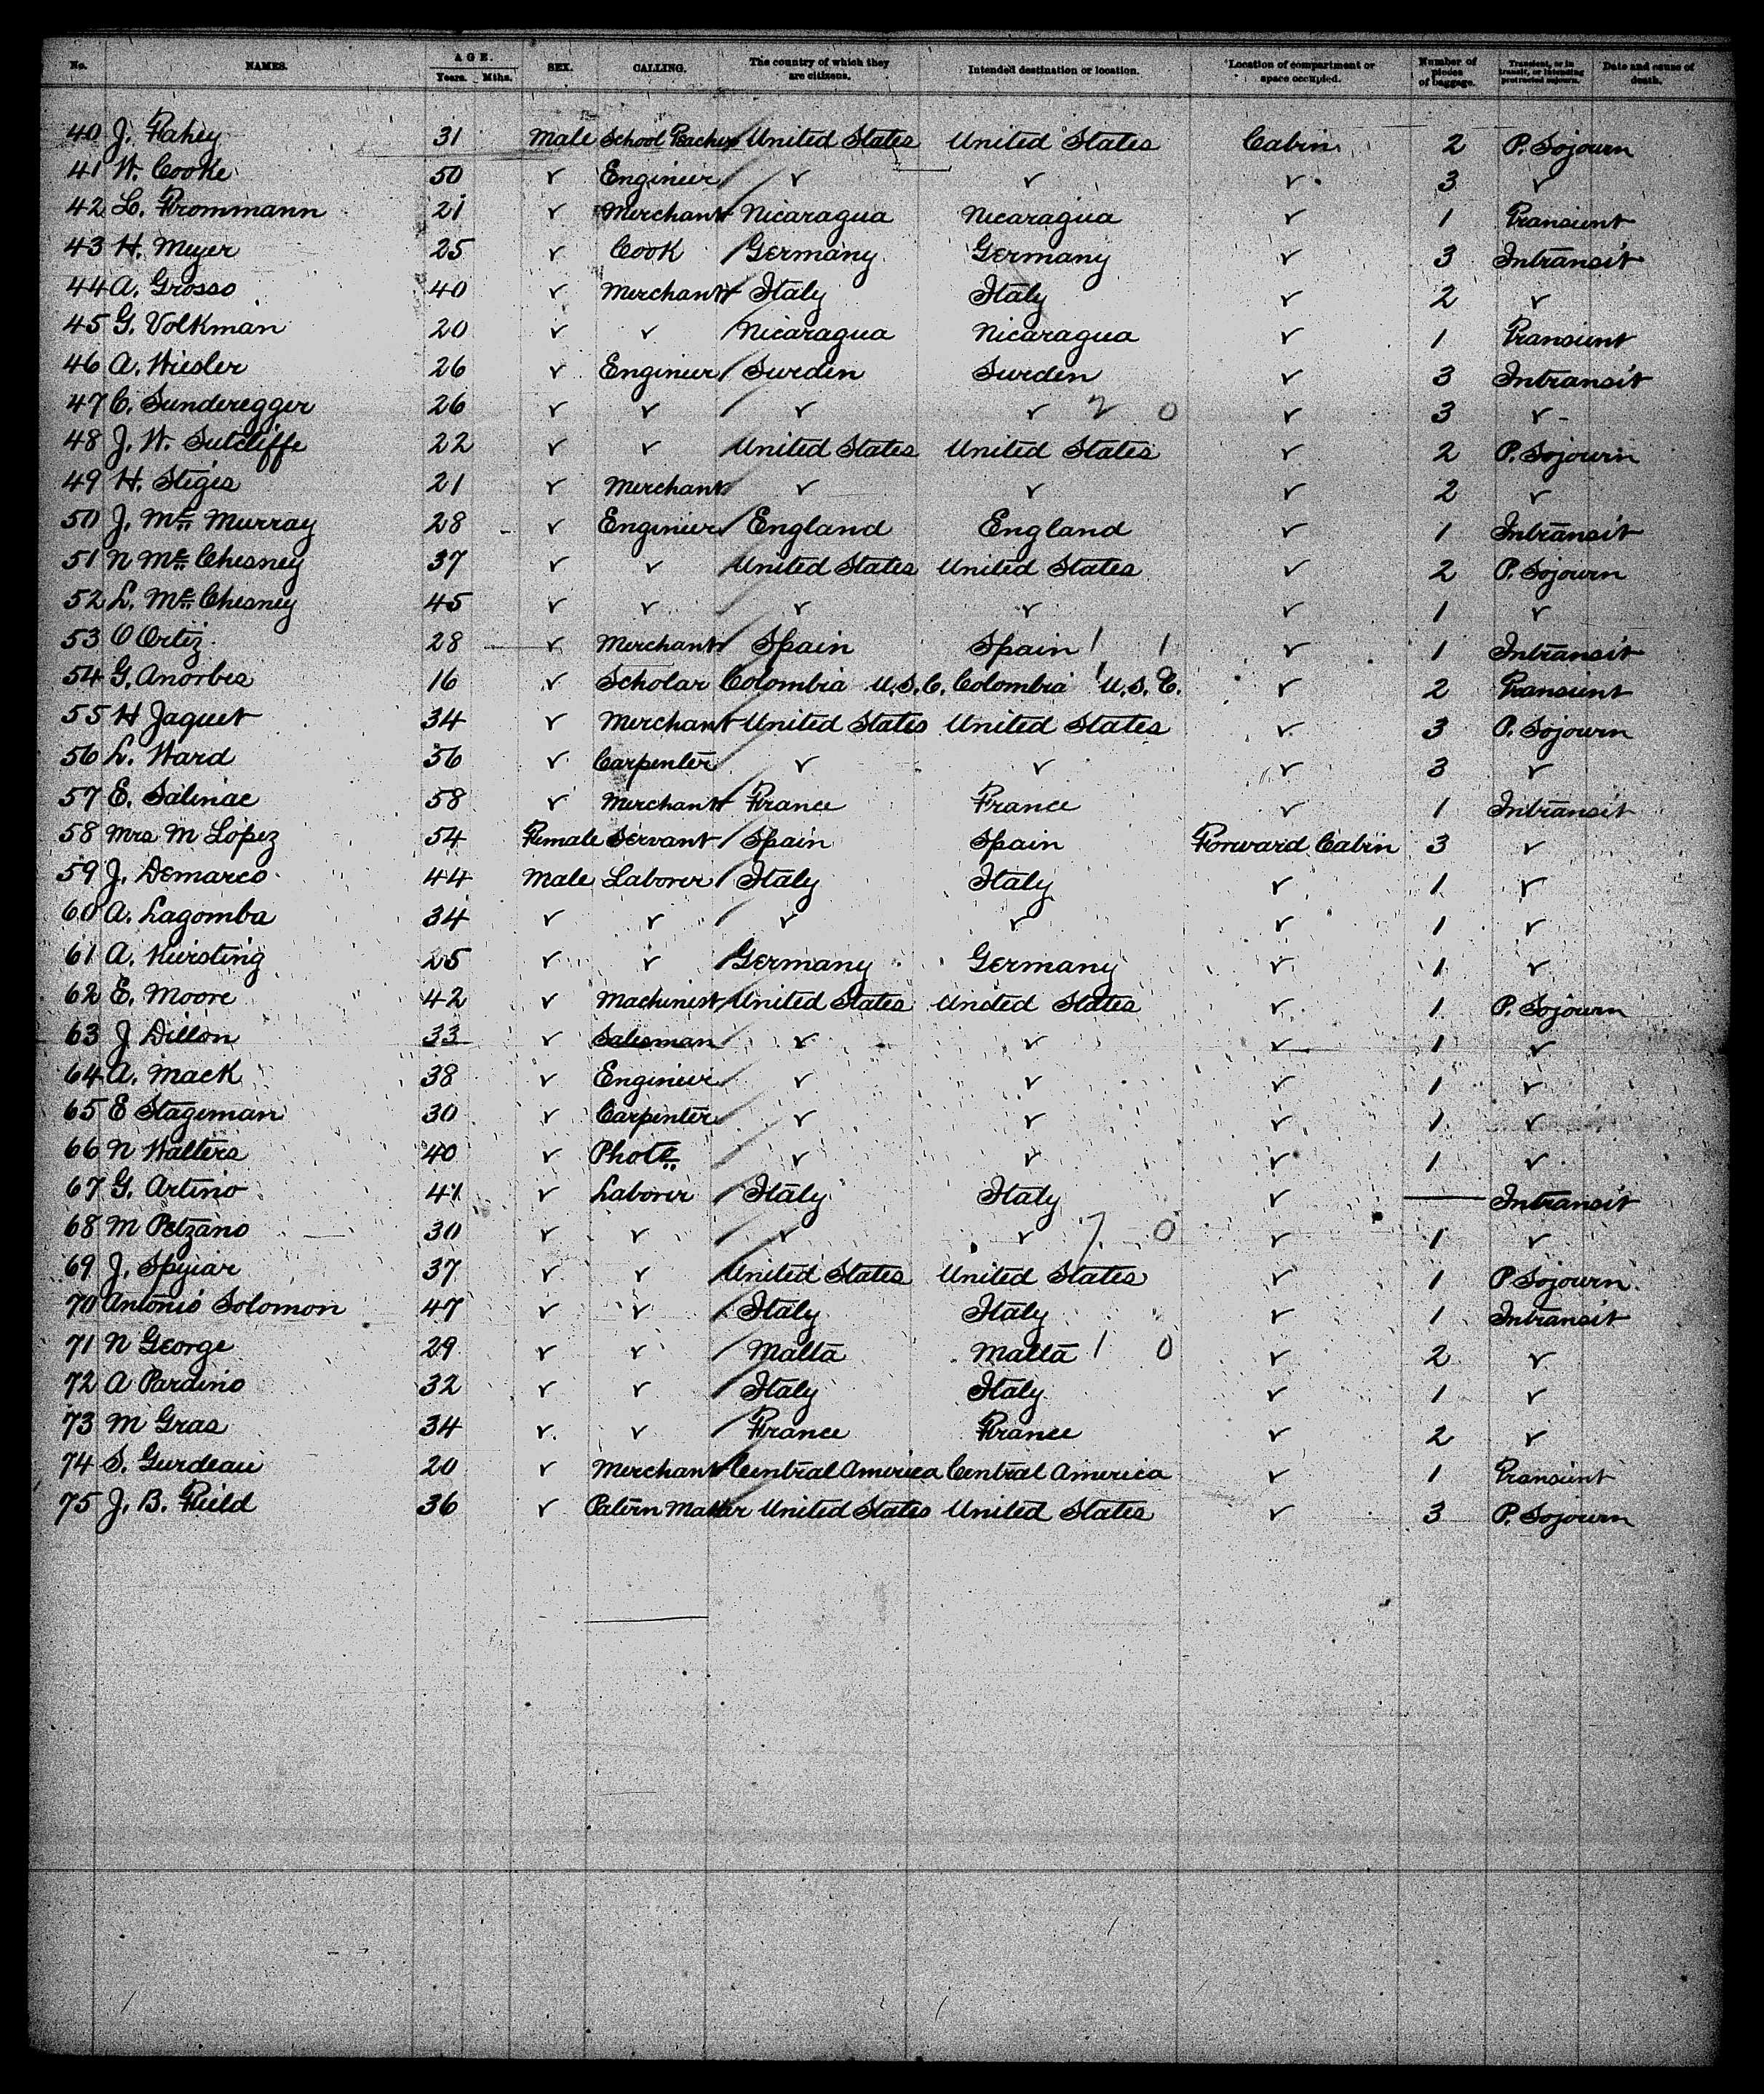 No. NAMES. AGE. Years. Mths. SEX. CALLING. The country of which they are citizens. Intended destination or location. Location of compartment or space occupied. Number of pieces of baggage. Transient, or in transit, or intending protracted sojourn. Date and cause of death.
40 J. Fahey 31 Male School Teacher United States United States Cabin 2 P. Sojourn
41 W. Cooke 50 ✓ Engineer ✓ ✓ ✓ 3 ✓
42 L. Frommann 21 ✓ Merchant Nicaragua Nicaragua ✓ 1 Transient
43 H. Meyer 25 ✓ Cook Germany Germany ✓ 3 Intransit
44 A. Grosso 40 ✓ Merchant Italy Italy ✓ 2 ✓
45 G. Volkman 20 ✓ ✓ Nicaragua Nicaragua ✓ 1 Transient
46 A. Wiesler 26 ✓ Engineer Sweden Sweden ✓ 3 Intransit
47 C. Sunderegger 26 ✓ ✓ ✓ ✓ 2 0 ✓ 3 ✓
48 J. W. Sutcliffe 22 ✓ ✓ United States United States ✓ 2 P. Sojourn
49 H. Steges 21 ✓ Merchant ✓ ✓ ✓ 2 ✓
50 J. Mc Murray 28 ✓ Engineer England England ✓ 1 Intransit
51 N Mc Chesney 37 ✓ ✓ United States United States ✓ 2 P. Sojourn
52 L. Mc Chesney 45 ✓ ✓ ✓ ✓ ✓ 1 ✓
53 O Ortiz 28 ✓ Merchant Spain Spain 1 1 ✓ 1 Intransit
54 G. Anorbes 16 ✓ Scholar Colombia U.S.C. Colombia U.S.C. ✓ 2 Transient
55 H Jaquet 34 ✓ Merchant United States United States ✓ 3 P. Sojourn
56 L. Ward 36 ✓ Carpenter ✓ ✓ ✓ 3 ✓
57 E. Salinac 58 ✓ Merchant France France ✓ 1 Intransit
58 Mrs M Lopez 54 Female Servant Spain Spain Forward Cabin 3 ✓
59 J. Demarco 44 Male Laborer Italy Italy ✓ 1 ✓
60 A. Lagomba 34 ✓ ✓ ✓ ✓ ✓ 1 ✓
61 A. Kiersting 25 ✓ ✓ Germany Germany ✓ 1 ✓
62 E. Moore 42 ✓ Machinist United States United States ✓ 1 P. Sojourn
63 J Dillon 33 ✓ Salesman ✓ ✓ ✓ 1 ✓
64 A. Mack 38 ✓ Engineer ✓ ✓ ✓ 1 ✓
65 E Stageman 30 ✓ Carpenter ✓ ✓ ✓ 1 ✓
66 N Walters 40 ✓ Photr ✓ ✓ ✓ 1 ✓
67 G. Artino 41 ✓ Laborer Italy Italy ✓ — Intransit
68 M Petzano 30 ✓ ✓ ✓ ✓ 7 0 ✓ 1 ✓
69 J. Spejear 37 ✓ ✓ United States United States ✓ 1 P Sojourn
70 Antonio Solomon 47 ✓ ✓ Italy Italy ✓ 1 Intransit
71 N George 29 ✓ ✓ Malta Malta 1 0 ✓ 2 ✓
72 A Pardino 32 ✓ ✓ Italy Italy ✓ 1 ✓
73 M Gras 34 ✓ ✓ France France ✓ 2 ✓
74 S. Gurdeau 20 ✓ Merchant Central America Central America ✓ 1 Transient
75 J. B. Field 36 ✓ Patern Maker United States United States ✓ 3 P. Sojourn